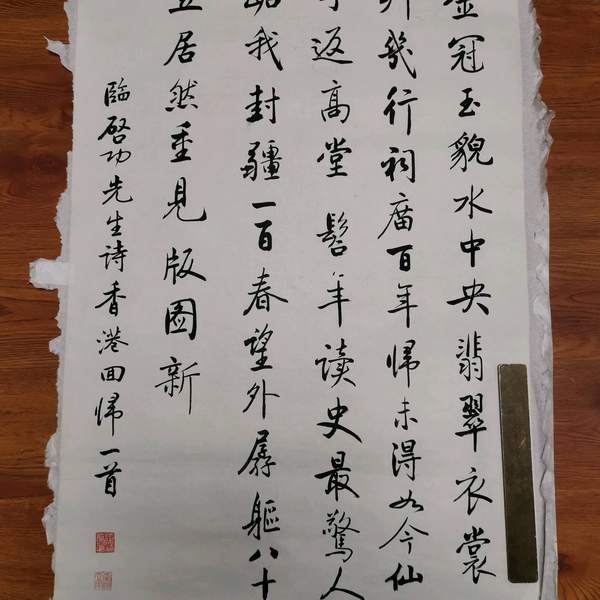 金冠玉貌水中央翡翠衣裳
幾行祠庿百年歸未得如今仙
返高堂 髫年读史最驚人
我封疆一百春望外孱軀八十
五居然重見版圖新
臨啓功先生詩香港回歸一首